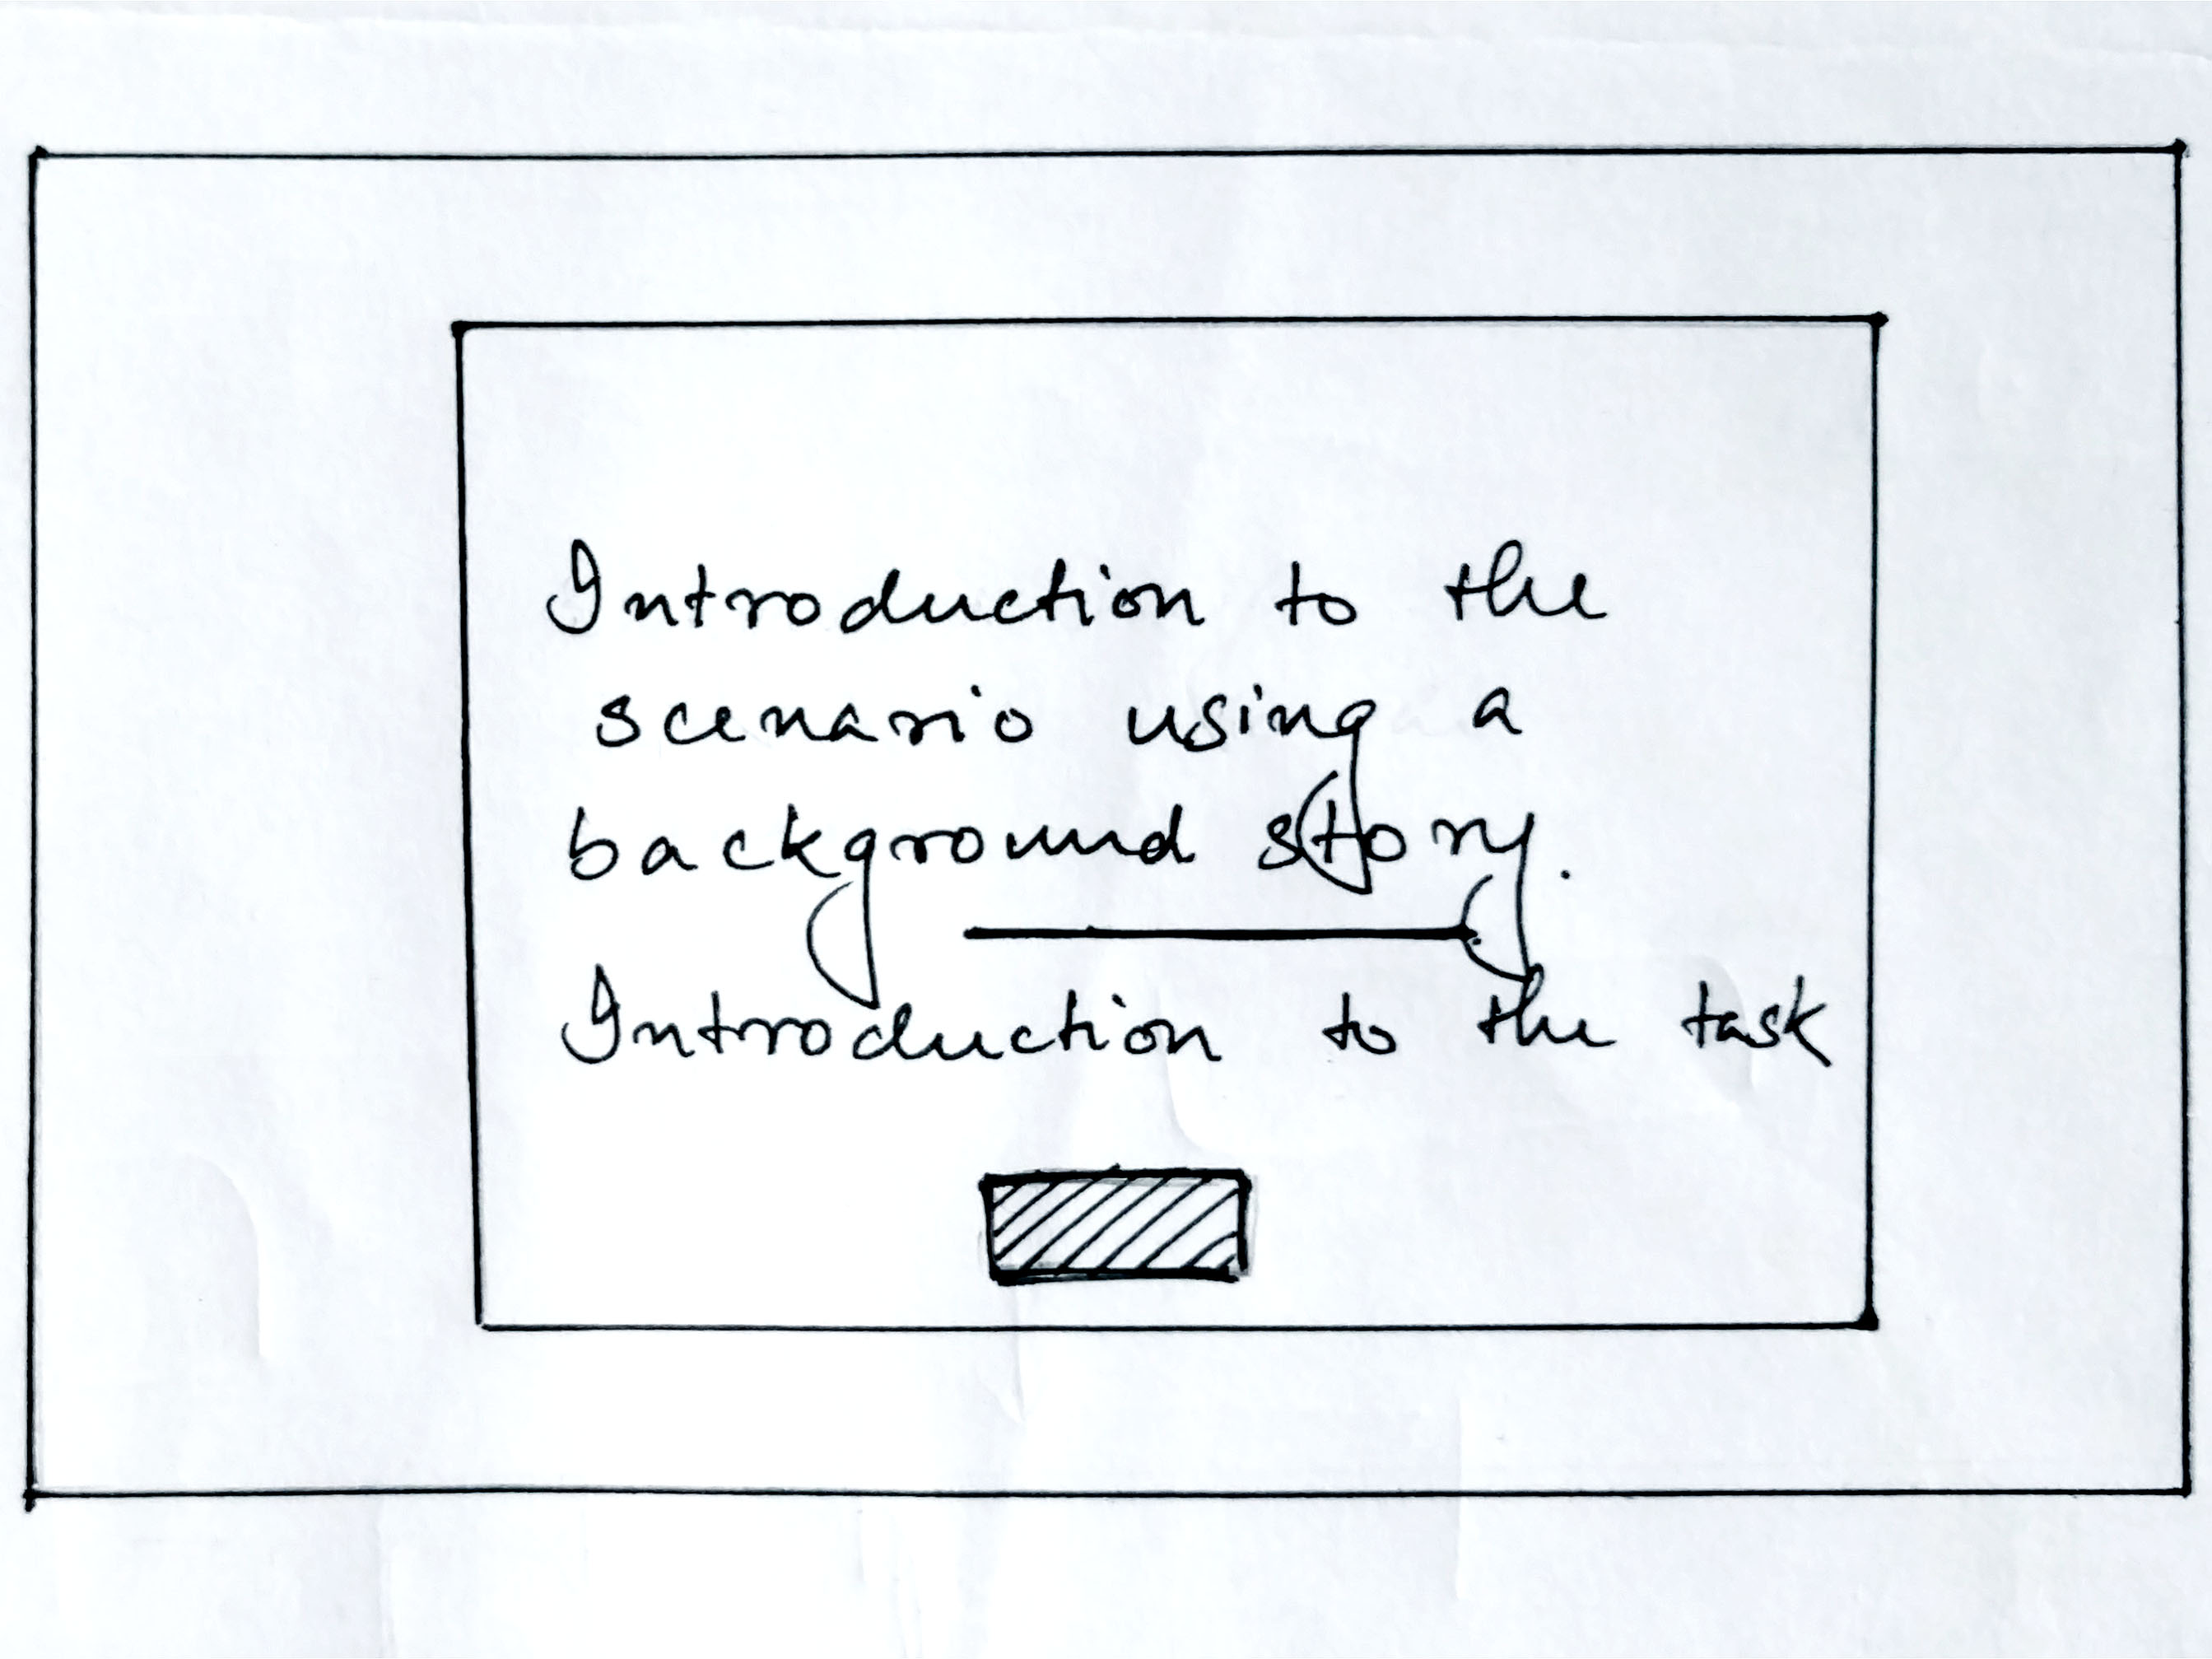 Introduction to the
scenario using a
background story.
Introduction to the task